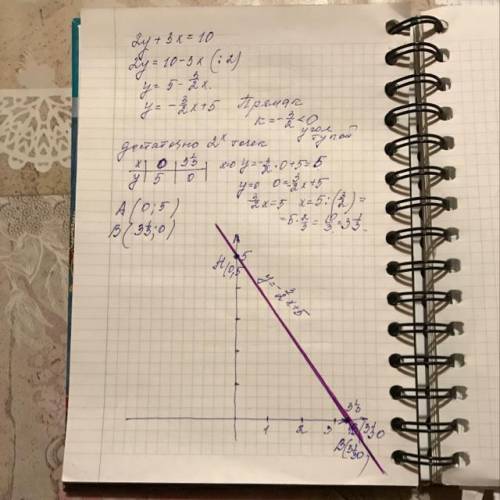 2y + 3x = 10
2y = 10 - 3x (:2)
y = 5 - 3/2x.
y = -3/2x + 5 Прямая
k = -3/2 < 0
угол тупой
достаточно 2х точек
x | 0 | 3⅓ x=0 y = -3/2·0+5=5
y | 5 | 0 y=0 0=-3/2x+5
A (0; 5) 3/2x=5 x=5:(3/2)=
B (3⅓; 0) =5·2/3=10/3=3⅓.
5
A(0,5
y=-3/2x+5
3⅓
1 2 3
B(3⅓;0)